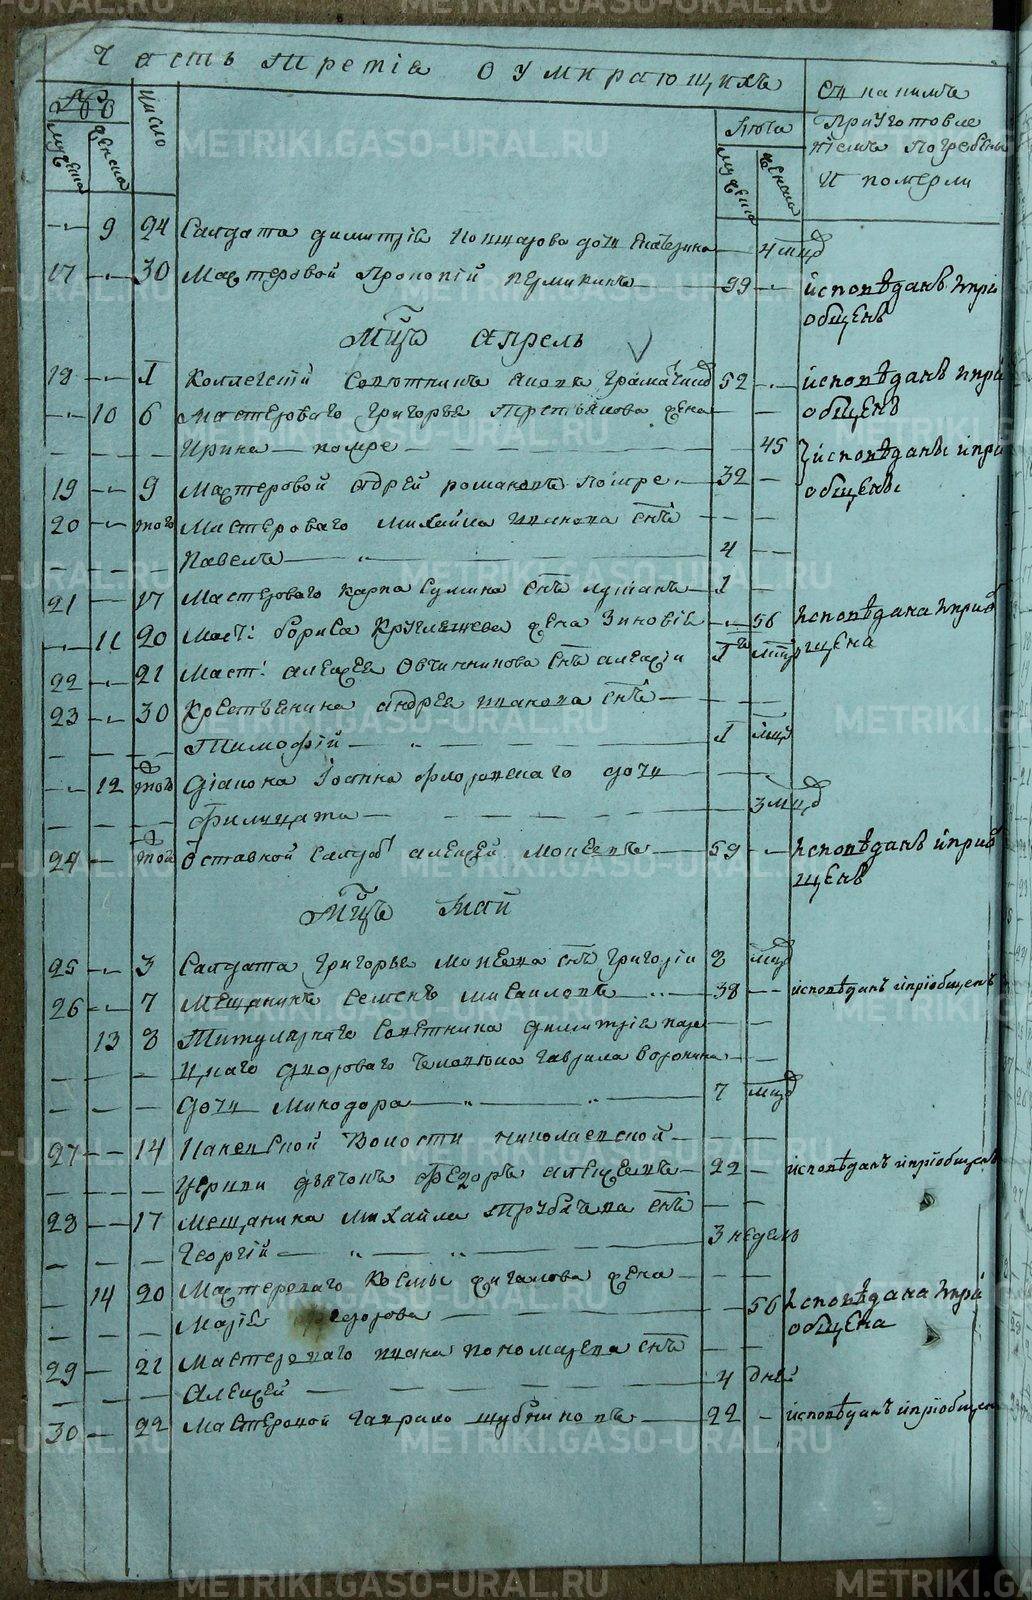 Часть третіа о умирающихъ
число
Лѣта
мужеска
женска
мужеска
женска
с каким
Приуготовле
ніемъ погребены
и померли
9 24 Салдата димитріа дочь Екатерина 4 мцд
17 30 Мастеровой Прокопій пермикинъ 99 исповѣданъ ипри
общенъ
Мцъ апрель
18 1 Коллегскій Советникъ 52 исповѣданъ ипри
10 6 Мастероваго Григорья Третьякова жена общенъ
Ирина помре 45 исповѣданы ипри
19 9 Мастеровой андрей романовъ помре 32 общены
20 того Мастероваго михайла иванова снъ
Павелъ 4
21 17 Мастероваго карпа Сумина снъ 1
11 20 Маст: бориса жена Зиновіа 56 исповѣдана ипріоб
22 21 Маст: алексеа Овчинникова снъ алексѣи 1 щена
23 30 Крестьянина андреа иванова снъ
Тимофій 1 мцд
12 Діакона Іоанна флоринскаго дочь
Филицата 3 мцд
24 той Отставной салдатъ алексей Мокеевъ 59 исповѣданъ ипріоб
щенъ
Мцъ Май
25 3 Салдата григорьа Мокеева снъ григорій 2 мцд
26 7 Мещанинъ семенъ михаиловъ 38 исповѣданъ ипріобщенъ
13 8 Титулярнаго Советника димитріа
дворового человека гаврила воронина
дочь Минодора 7 мцд
27 14 волости николаевской
церкви дьячокъ федоръ алексеевъ 22 исповѣданъ ипріобщенъ
28 17 Мещанина михайла трубачева снъ
Георгій 3 недель
14 20 Мастероваго Козмы жигалова жена
Маріа федорова 56 исповѣдана ипри
общена
29 21 Мастероваго ивана пономарева снъ
Алексей 4 дней
30 22 Мастеровой гаврило шубниковъ 22 исповѣданъ ипріобщенъ
METRIKI.GASO-URAL.RU